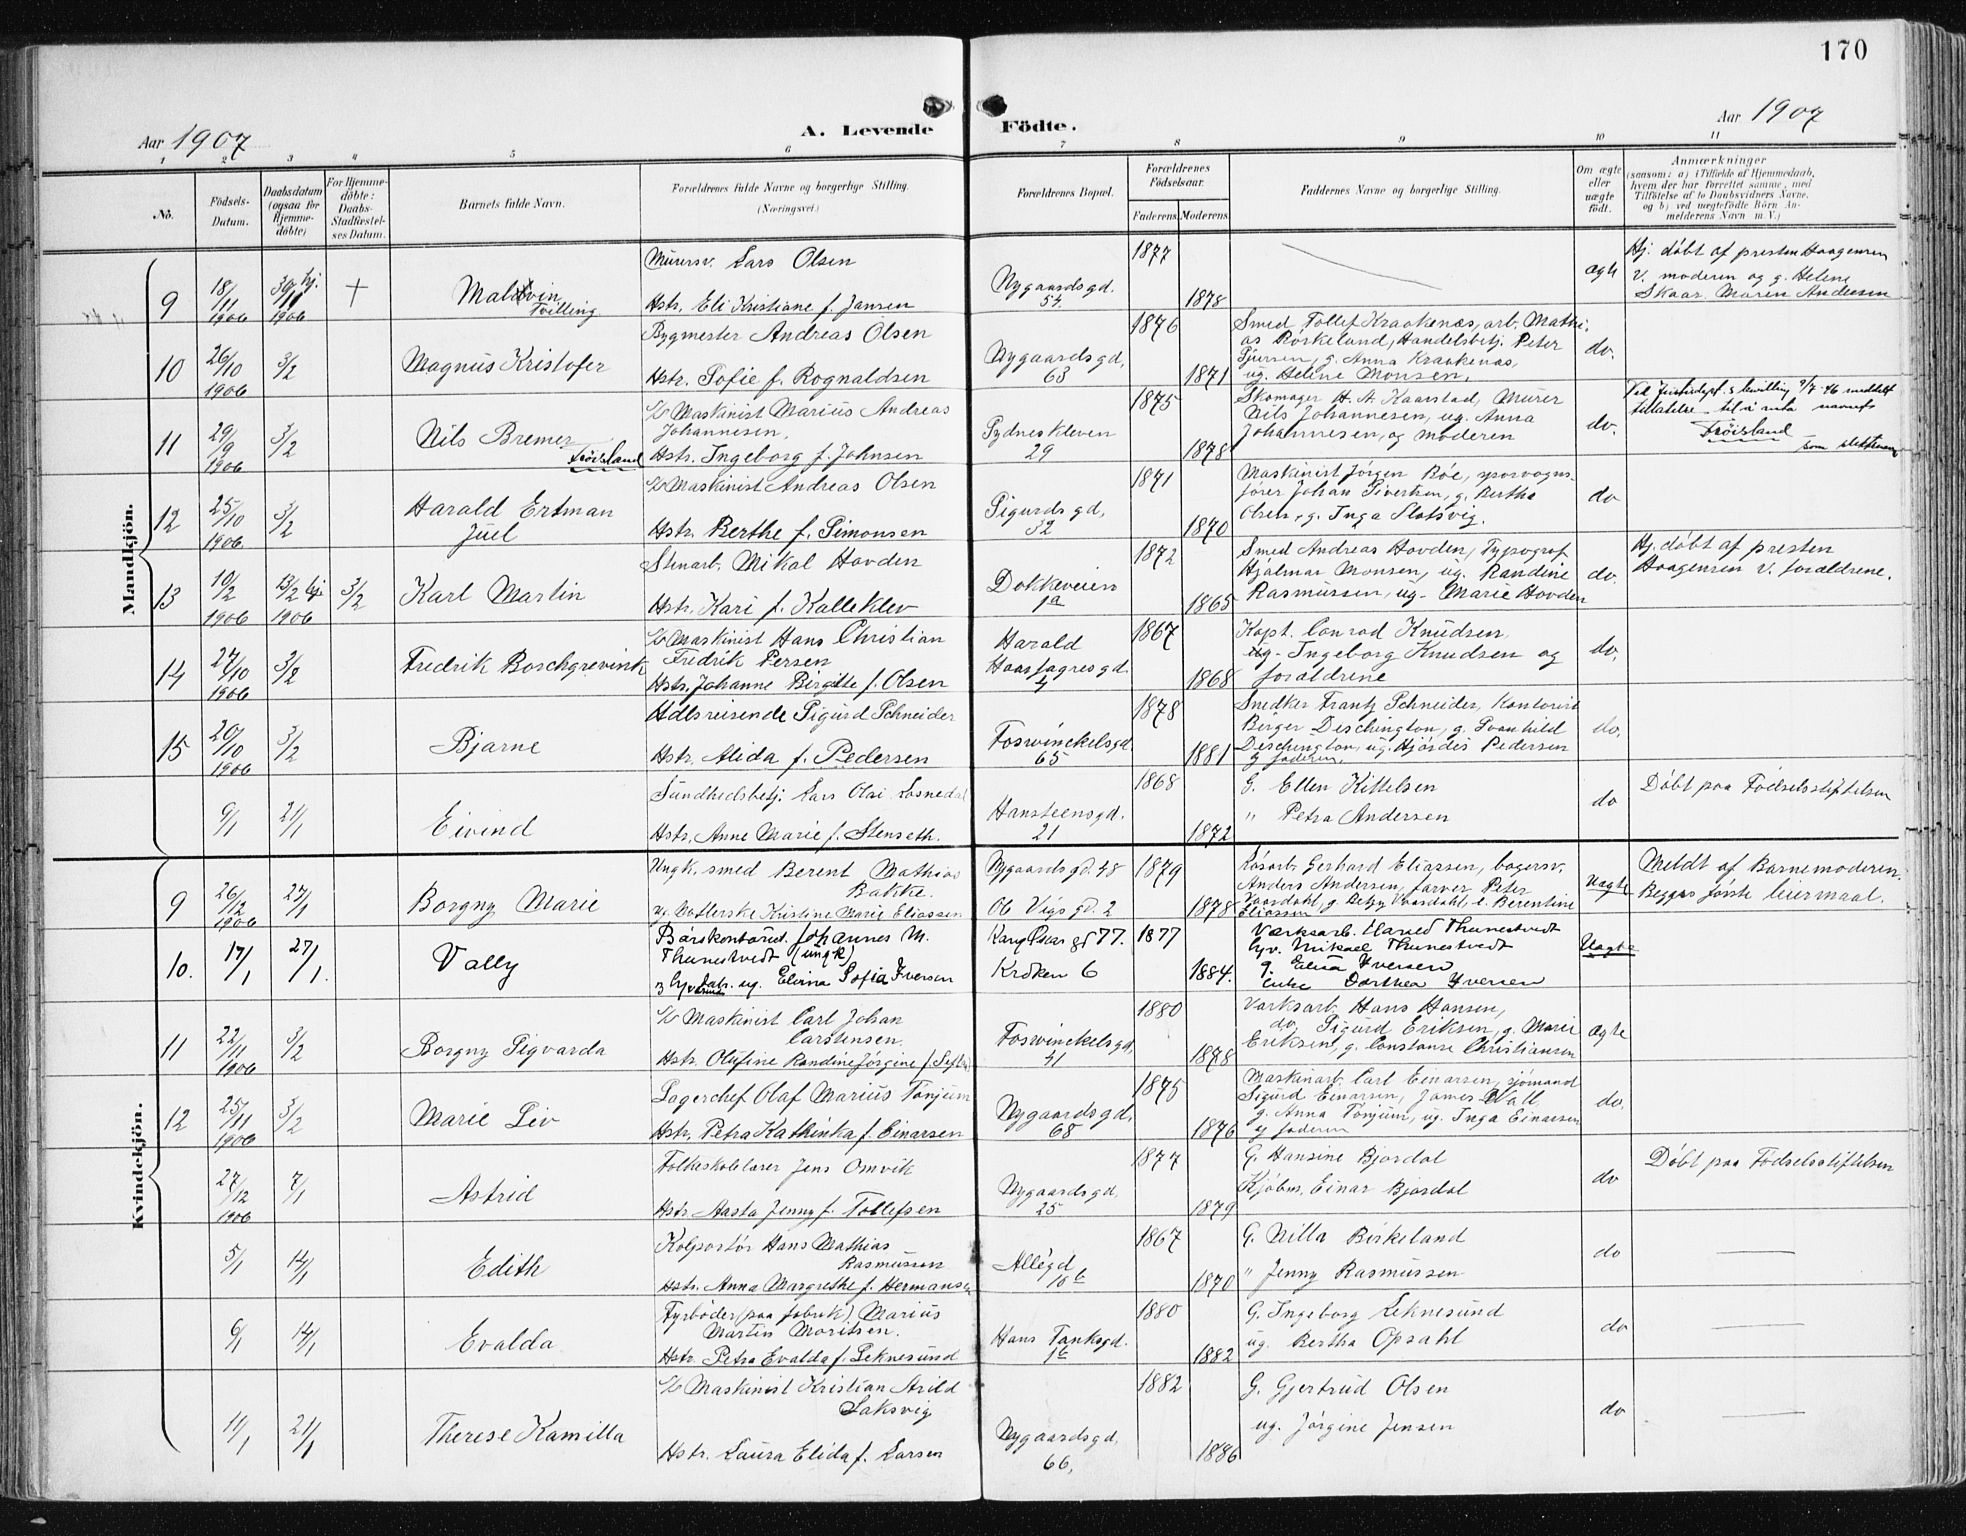 170
Aar 1907
A. Levende Födte.
Aar 1907
1 2 3 4 5 6 7 8 9 10 11
No.
Födsels-Datum.
Daabsdatum (ogsaa for Hjemme-döbte)
For Hjemme-döbte: Daabs-Stadfæstel-ses Datum.
Barnets fulde Navn.
Forældrenes fulde Navne og borgerlige Stilling.
(Næringsvei.)
Forældrenes Bopæl.
Forældrenes Födselsaar.
Faderens. Moderens.
Faddernes Navne og borgerlige Stilling.
Om ægte eller uægte født.
Anmærkninger
(saasom: a) i Tilfælde af Hjemmedaab, hvem der har forrettet samme, med Tilföielse af to Daabsvidners Navne, og b) ved uægtefödte Börn An-melderens Navn m. V.)
Mandkjön.
9 18/11 1906 30/11 hj. 1906 +
Malvin
Tvilling
Murersv. Lars Olsen
Hstr. Eli Kristiane f. Jansen
Nygaardsgd. 54
1877 1878
ægte
Hj. döbt af presten Haagensen
v. moderen og g. Helene
Skaar, Maren Andersen
10 26/10 1906 3/2
Magnus Kristofer
Bygmester Andreas Olsen
Hstr. Sofie f. Rognaldsen
Nygaardsgd, 63
1876 1871
Smed Tollef Kraakenæs, arb. Mathi-
as Börkeland, Handelsbetj. Peter
g. Anna Kraakenæs,
ug. Helene Monsen.
do.
11 29/9 1906 3/2
Nils Bremer
Fröisland
Maskinist Marius Andreas
Johannesen,
Hstr. Ingeborg f. Johnsen
Sydneskleven 29
1875 1878
Skomager H. A. Kaarstad, Murer
Nils Johannesen, ug. Anna
Johannesen, og moderen
do.
tillatelse til å anta navnet
Fröisland
som slektsnavn
12 25/10 1906 3/2
Harald Ertman
Juel
Maskinist Andreas Olsen
Hstr. Berthe f. Simonsen
Sigurdsgd, 32
1871 1870
Maskinist Jörgen Böe, sporvogns-
förer Johan Siversen, g. Bertha
Olsen, g. Inga Slotsvig.
do
13 10/2 1906 13/2 hj. 1906 3/2
Karl Martin
Stenarb. Mikal Hovden
Hstr. Kari f. Kalleklev
Dokkeveien 1a
1872 1865
Smed Andreas Hovden, Typograf
Hjalmar Monsen, ug. Randine
Rasmussen, ug. Marie Hovden
do.
Hj. döbt af presten
Haagensen v. forældrene.
14 27/10 1906 3/2
Fredrik Borchgrevink
Maskinist Hans Christian
Fredrik Persen
Hstr. Johanne Birgitte f. Olsen
Harald
Haarfagresgd. 4
1867 1868
Kapt. Conrad Knudsen,
ug. Ingeborg Knudsen og
forældrene
do.
15 20/10 1906 3/2
Bjarne
Hdlsreisende Sigurd Schneider
Hstr. Alida f. Pedersen
Foswinckelsgd. 65
1878 1881
Snedker Frantz Schneider, Kontorist
Börger Deschington, g. Svanhild
Deschington, ug. Hjördis Pedersen
og faderen.
do.
6/1 21/1
Eivind
Sundhedsbetj. Lars Olai Losnedal
Hstr. Anne Marie f. Stenseth.
Hansteensgd. 21
1868 1872
G. Ellen Kittelsen
" Petra Andersen
do
Döbt paa Födselsstiftelsen
Kvindekjön.
9 26/12 1906 27/1
Borgny Marie
Ungk. smed Berent Mathias
Bakke.
ug. Kristine Marie Eliassen
Nygaardsgd. 48
Ol Vigs gd. 2
1879 1878
Lösarb. Gerhard Eliassen, bagersv.
Anders Andersen, farver Peter
Vaardahl, g. Betzy Vaardahl, e. Berentine
Eliassen
Uægte
Meldt af Barnemoderen.
Begges förste leiermaal.
10. 17/1 27/1.
Vally
Börskontorist. Johannes M.
Thunestvedt (ungk)
ug. Elvina Sofia Iversen
Kong Oscars gd 77.
Kroken 6
1877 1884.
Værksarb. Harald Thunestvedt
Mikael Thunestvedt
g. Elisa Iversen
Enke Dorthea Iversen
Uægte
11 22/11 1906 3/2
Borgny Sigvarda
Maskinist Carl Johan
Carstensen.
Hstr. Olufine Randine Jörgine f.
Foswinckelsgd, 41
1880 1878
Værksarb. Hans Hansen,
do Sigurd Eriksen, g. Marie
Eriksen, g. Constanse Christiansen
ægte
12 25/11 1906 3/2
Marie Liv
Lagerchef Olaf Marius Tonjum
Hstr. Petra Kathinka f. Einarsen
Nygaardsgd, 68
1875 1876
Maskinarb. Carl Einarsen, sjömand
Sigurd Einarsen, James Wall
g. Anna Tonjum, ug. Inga Einarsen
og faderen
do.
27/12 1906 7/1
Astrid
Folkeskolelærer Jens Omvik
Hstr. Aasta Jenny f. Tollefsen
Nygaardsgd. 25
1877 1879
G. Hansine Bjordal
Kjöbm. Einar Bjordal
do
Döbt paa Födselsstiftelsen
5/1 14/1
Edith
Kolportör Hans Mathias
Rasmussen
Hstr. Anna Margrethe f. Hermansen
Allégd 10b
1867 1870
G. Nilla Birkeland
" Jenny Rasmussen
do
6/1 14/1
Evalda
Fyrböder (paa fabrik) Marius
Martin Moritsen.
Hstr. Petra Evalda f. Leknesund
Hans Tanksgd. 1c
1880 1882
G. Ingeborg Leknesund
ug. Bertha Opsahl
do
11/1 21/1
Therese Kamilla
Maskinist Kristian Arild
Laksvig
Hstr. Laura Elida f. Larsen
Nygaardsgd, 66,
1882 1886
G. Gjertrud Olsen
ug. Jörgine Jensen
do